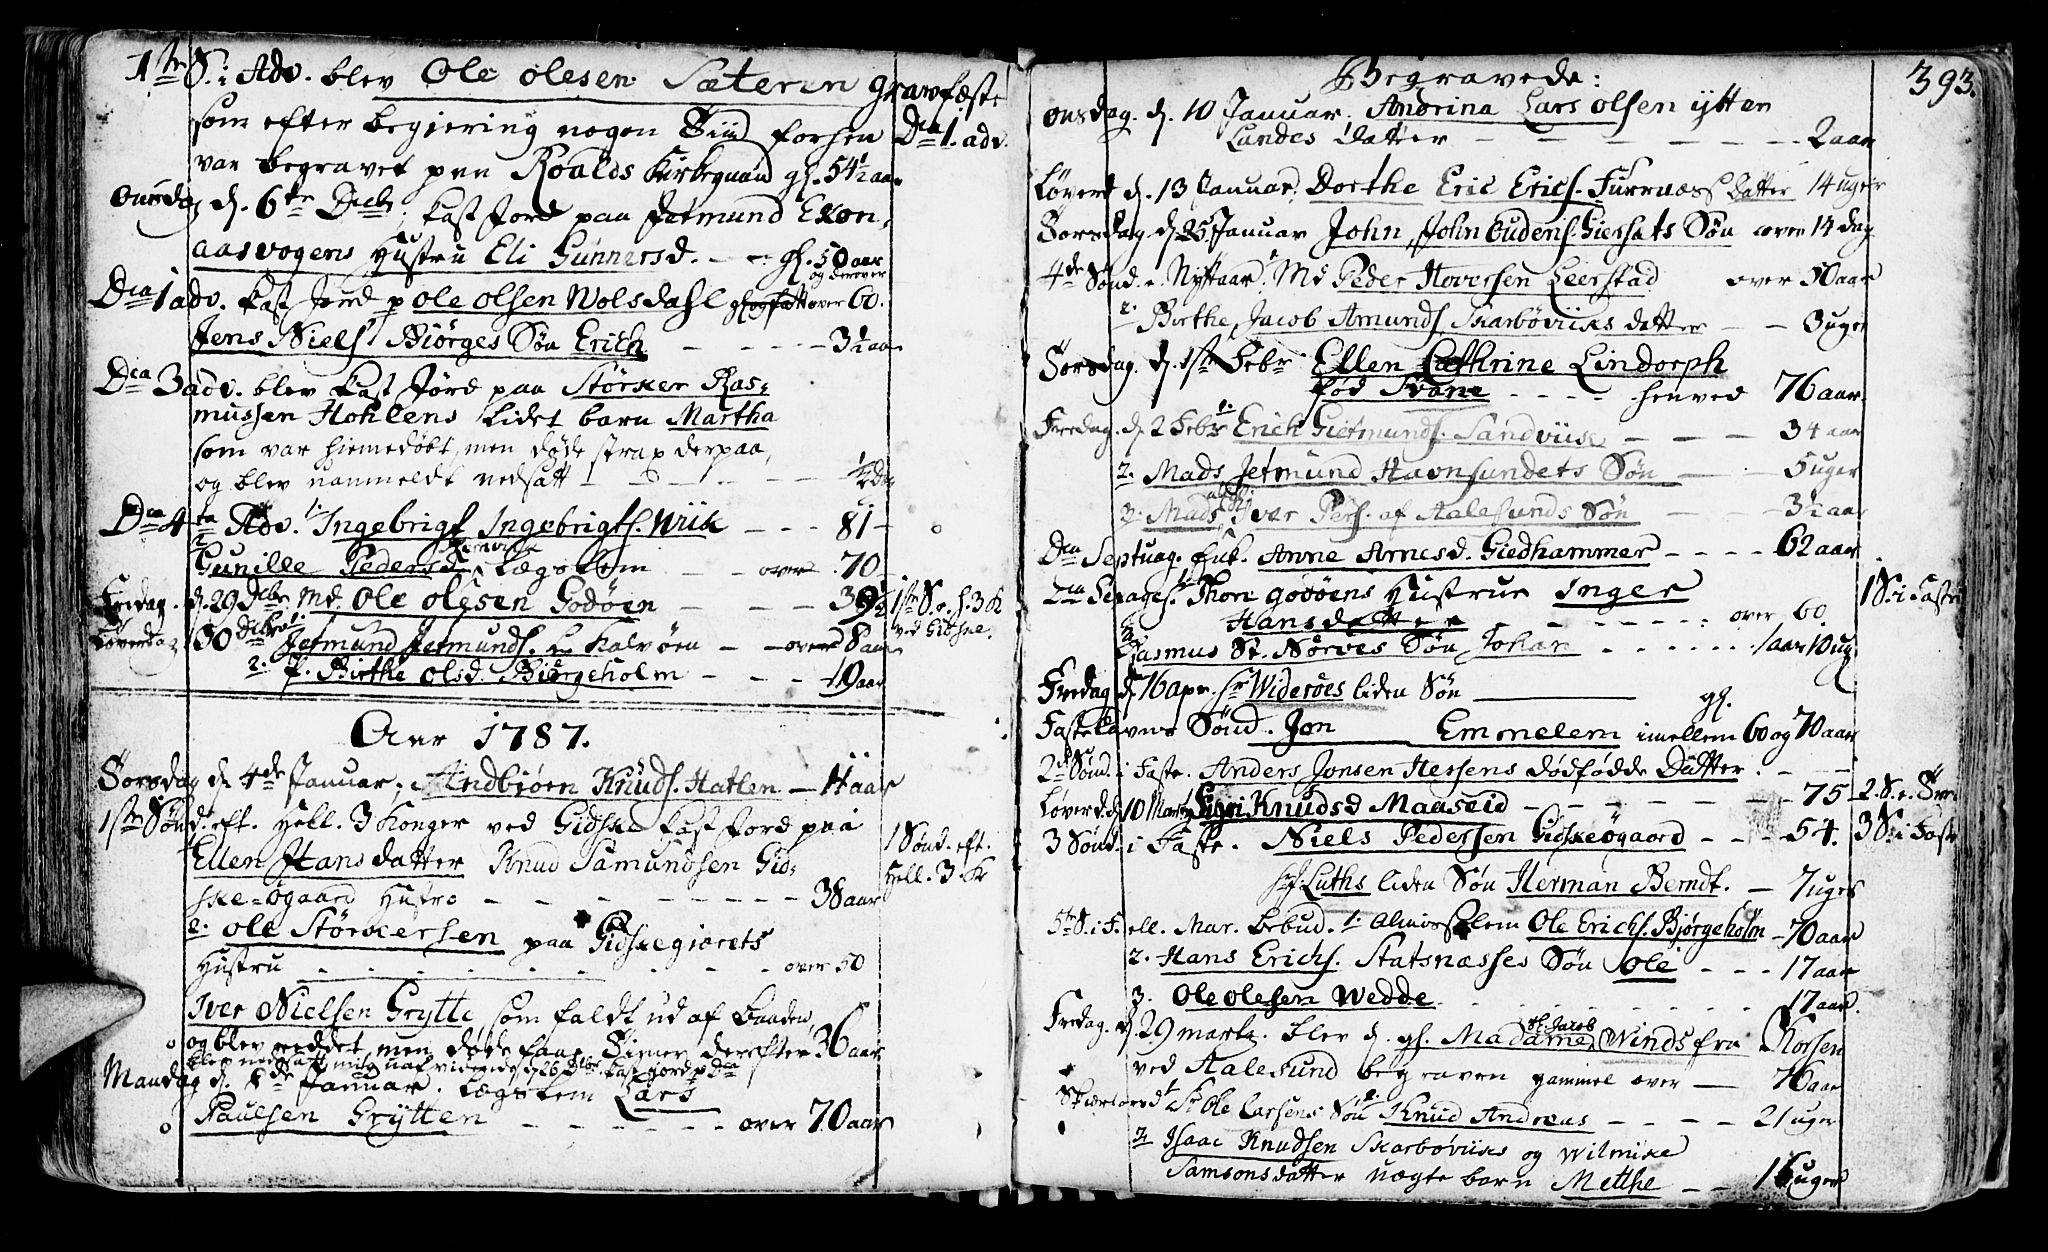 1ste S. i Adv. blev Ole Olesen Sæteren gravfæstet
som efter begiering nogen Tiid forhen
var begravet paa Roalds Kirkegaard gl. 54½ aar
Dca 1. adv.
Onsdag d. 6te Decbr. kast Jord paa Jetmund Exon,
aasvogens Hustru Eli Gunnersd. - - gl. 50 aar
og derover
Dca 1 adv. kast Jord p Ole Olsen Wolsdahl over 60.
Jens Niels. Biørges Søn Erich - - - - 3½ aar
Dca 3 adv. blev kast Jord paa Størker Ras-
mussen Hohlens lidet barn Martha
som var hiemedøbt, men døde strax derpaa,
og blev uanmeldt nedsatt - - - - ½ dag
Dca 4ta Adv. 1. Ingebrigt Ingebrigts. Wiik - - - 81 -
2. Gunille Pedersd. Lægslem - - over 70 -
Fredag. d. 29 Decbr. Md. Ole Olesen Godøen - - - - 39½
1ste S. e. h. 3 K
ved Gidske.
Løverdag 30 Decbr. 1. Jetmund Jetmunds. Kalvøen - - over 8 aar
2. P. Birthe Olsd. Biørgeholm - - - - 10 aar
Aar 1787.
Torsdag d. 4de Januar. Andbiøen Knuds. Hatlen - 14 aar
1ste Sønd. eft. Hell. 3 Konger ved Gidske kast Jord paa
Ellen Hansdatter Knud Samundsen Gid-
ske-øgaard Hustro - - - - - - - - 38 aar
1 Sønd. eft.
Hell. 3. K
2. Ole Størkersen paa Gidskegiærets
Hustru - - - - - - - - over 50
Iver Nielsen Grytte, som faldt ud af Baaden,
og blev reddet, men døde faae Timer derefter 36 aar
Mandag d. 8de Januar. Lægslem Lars
Paulsen Grytten - - - - - - over 70 aar
Begravede:
393.
Onsdag. d. 10 Januar. Andrina Lars Olsen ytter
Landes Datter - - - - - - - 2 aar
Løverd. d. 13 Januar. Dorthe Eric Erichs. Furnæss Datter 14 uger
Torsdag d. 25 Januar John, John Gudens. Giersets Søn over 14 dag
4de Sønd. e. Nyttaar. 1. Md Peder Hoversen Leerstad over 50 aar
2. Birthe, Jacob Amunds. Skarbøviks datter - - 3 uger
Torsdag. d. 1ste Febr. Ellen Cathrine Lindorph
fød Svane - - - - henved 76 aar.
Fredag. d. 2 Febr. 1. Erich Gietmunds. Sandviise - - - 34 aar
2. Mads Jetmund Havnsundets Søn - - 5 uger
3. Mads, Iver Pers. af Aalesunds Søn - - - 3½ aar
Dca Septuag. Enk. Anne Arnesd. Giedhammer - - - - 62 aar.
Dca Sexages. 1. Thore Godøens Hustrue Inger
Hansdatter - - - - - over 60.
1 S. i Faste
2. Rasmus St. Nørves Søn Johan - - - - - 1 aar 10 ug.
Fredag d. 16 Sr. Widerøes liden Søn
Fastelavns Sønd. Jon Emmelem gl. imellem 60 og 70 aar
2d Sønd. i Faste. Anders Jonsen Hessens dødfødde Datter.
Løverd. d. 10 Martz Egri Knudsd Maaseid - - - - - - 75
2. S. e. Sr.
3 Sønd. i Faste. Niels Pedersen Gidskeøgaard - - - 54.
3 S. i Faste
Hr. Luths liden Søn Herman Berndt. - 7 uger
5te S. i F. ell. Mar. bebud. 1. Almisselem Ole Erichs. Bjørgeholm - 70 aar
2. Hans Erichs. Statsnæsses Søn Ole - - - 17 aar
3. Ole Olesen Wedde - - - - - 17 aar.
Fredag. d. 29 martz. blev d. gl. Madame Sl. Jacob Winds fra Norsen
ved Aalesund begraven gammel over - 76 aar
Skiertorsd. 1. Sr Ole Larsens Søn Knud Andreas - - - - 21 uger
2. Isaac Knudsen Skarbøviks og Wilmike
Samsonsdatter uægte barn Methe - - 16 uger